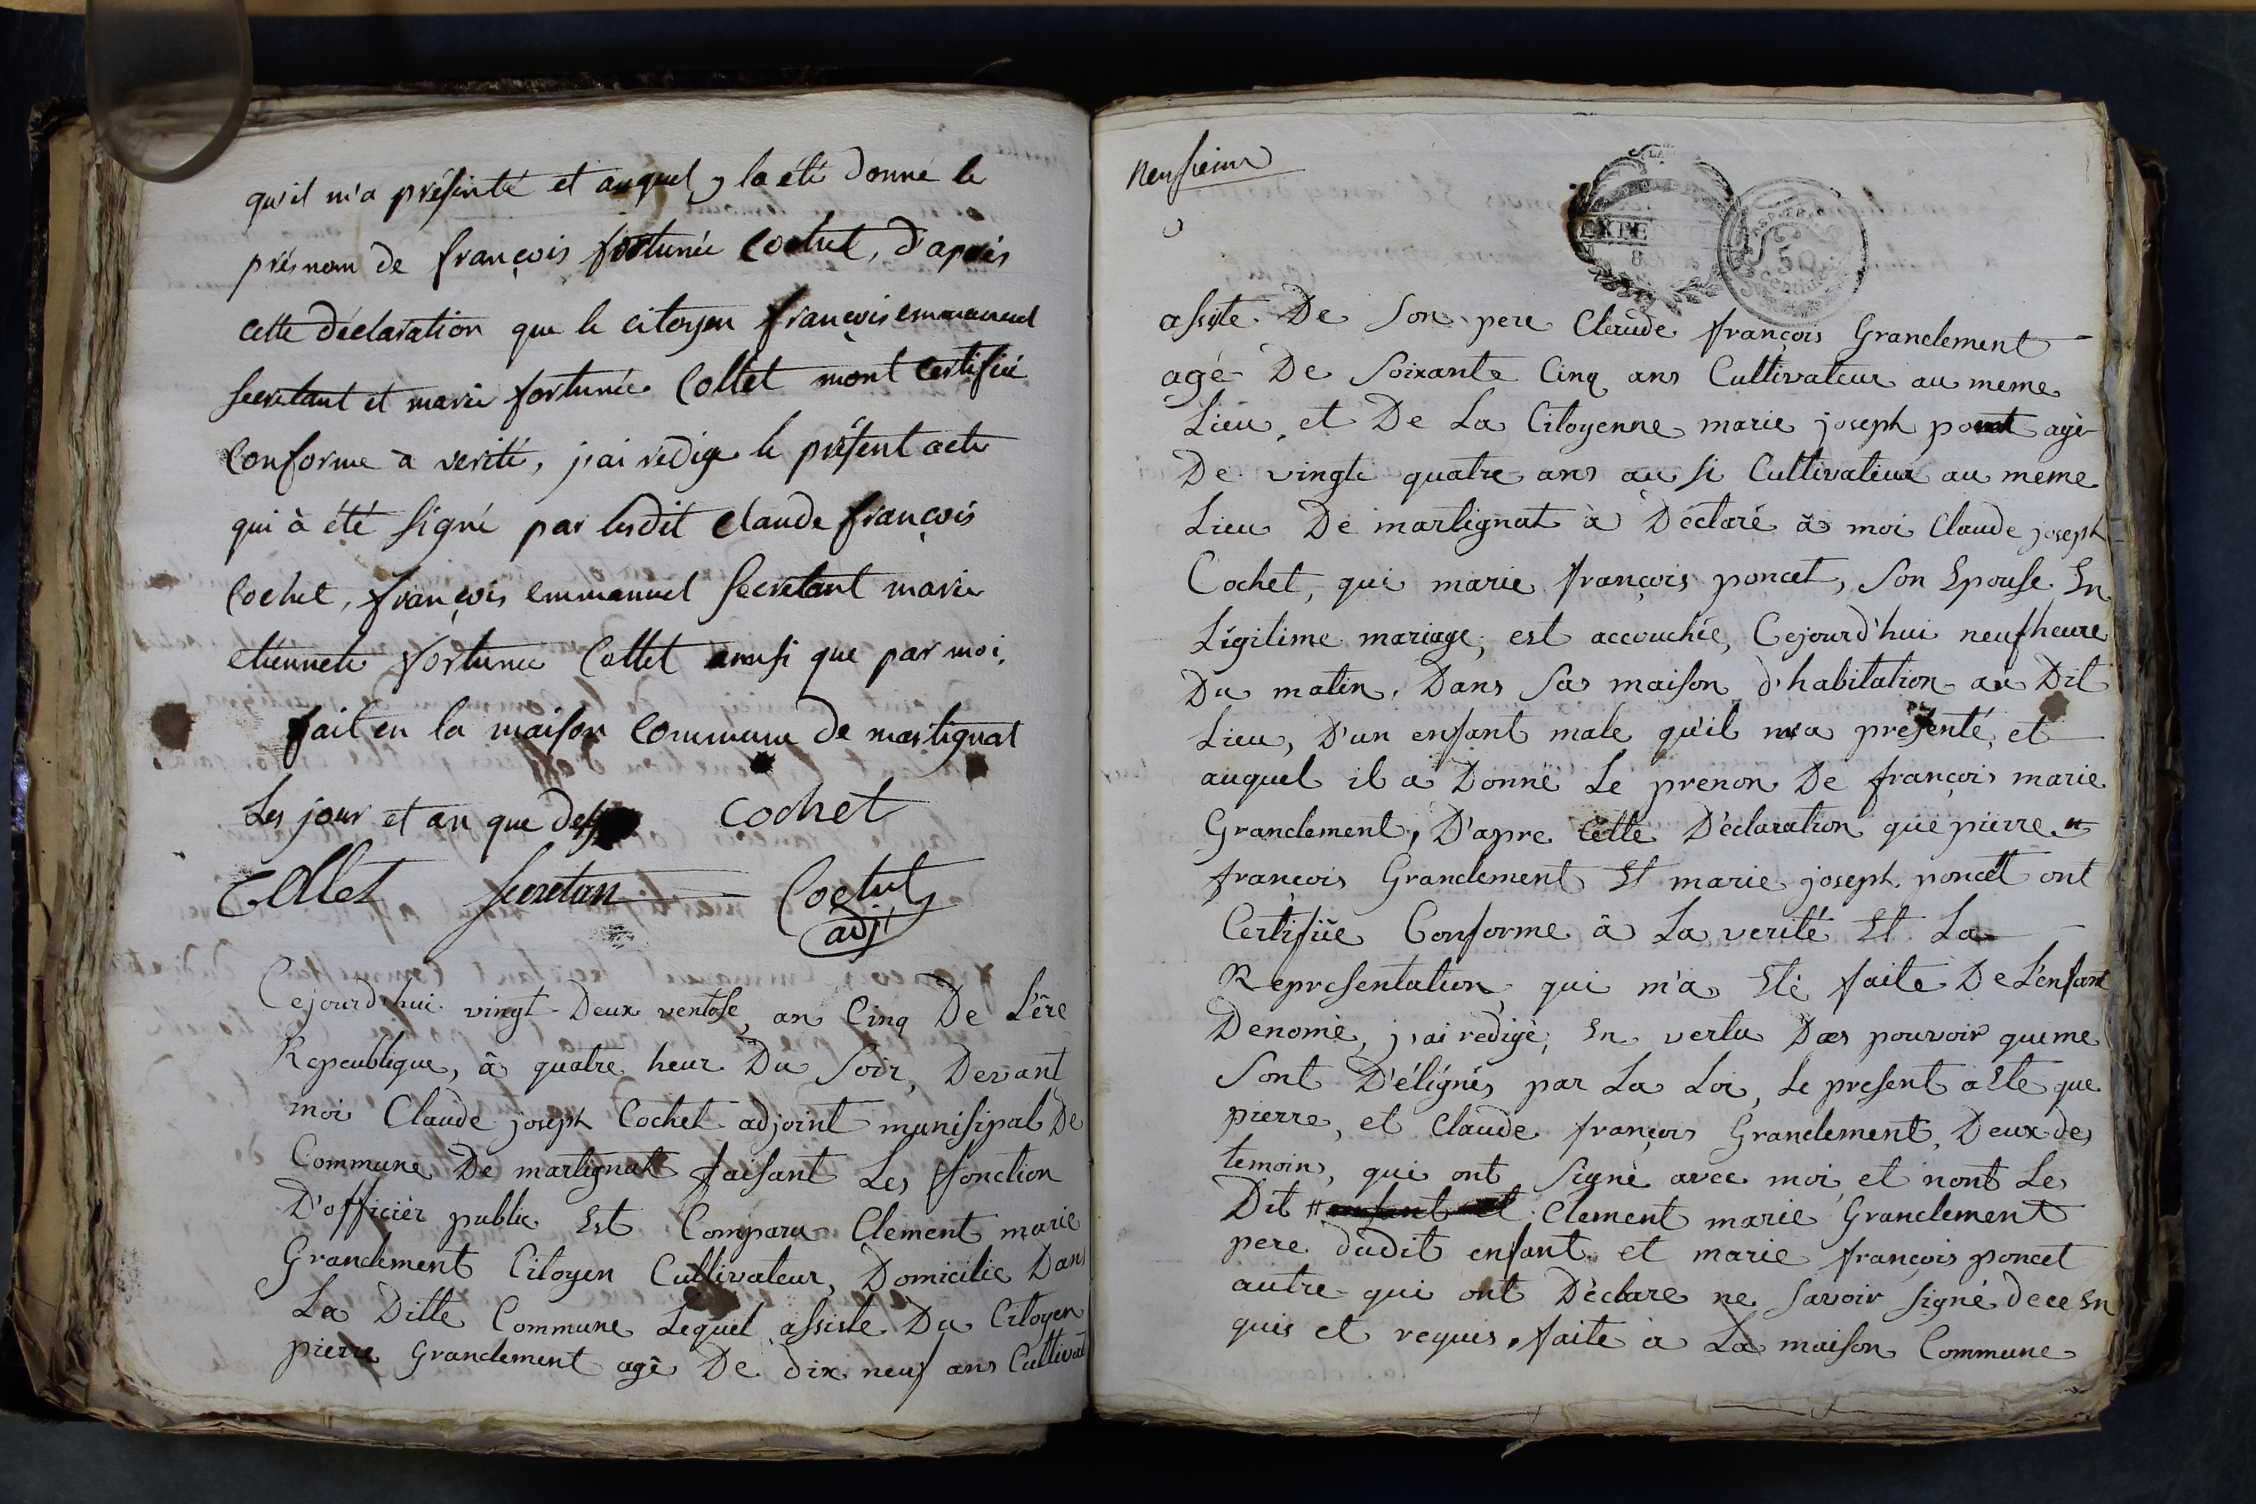 qu'il m'a présenté et auquel y la été donné le
présnom de françois fortunée Cochet, d'aprés
cette déclaration que le citoyen françois emmanuel
secretant et marie fortunée Collet mont certifiée
conforme a verité, j'ai redige le présent acte
qui à été signé par lesdit Claude françois
Cochet, françois emmanuel secretant marie
etiennete fortunee Collet ainsi que par moi,
fait en la maison commune de martignat
Les jour et an que dessus Cochet
Collet secretan Cochet
adjt
Cejourd'hui vingt Deux ventose, an Cinq De L'ére
Republique, â quatre heur Du Soir, Devant
moi Claude joseph Cochet adjoint munisipal De
Commune De martignat faisant Les fonction
D'officièr public Est Comparu Clement marie
Grandement Citoyen Cultivateur, Domicilie Dans
La Ditte Commune Lequel assiste Du Citoyen
pierre Grandement agê De dix neuf ans Cultivat
neufieme
EXPE
50
assiste De Son pere Claude françois Grandement
agé De Soixante Cinq ans Cultivateur au meme
Lieu, et De La Citoyenne marie joseph poncet agé
De vingte quatre ans au si Cultivateur au meme
Lieu De martignat à Déclaré à moi Claude joseph
Cochet, qui marie françois poncet, Son Epouse En
Légitime mariage, est accouchée, Cejourd'hui neuf heure
Du matin, Dans Sa maison d'habitation au Dit
Lieu, D'un enfant male qu'il m'a présenté, et
auquel il a Donné Le prenon De françois marie
Grandement, D'apre Cette Déclaration que pierre et
françois Grandement Et marie joseph poncet ont
Certifiée Conforme â La verité Et La
Representation qui m'a Eté faite De L'enfant
Denomé, j'ai redigé, En vertu Des pouvoir que me
Sont D'élégnés par La Loi, Le present aEte que
pierre, et Claude françois Grandement, Deux des
temoins, qui ont Signé avec moi et nont Le
Dit Clement marie Grandement
pere dudit enfant et marie françois poncet
autre qui ont Déclare ne Savoir signé de ce En
quis et requis, faite a La maison Commune